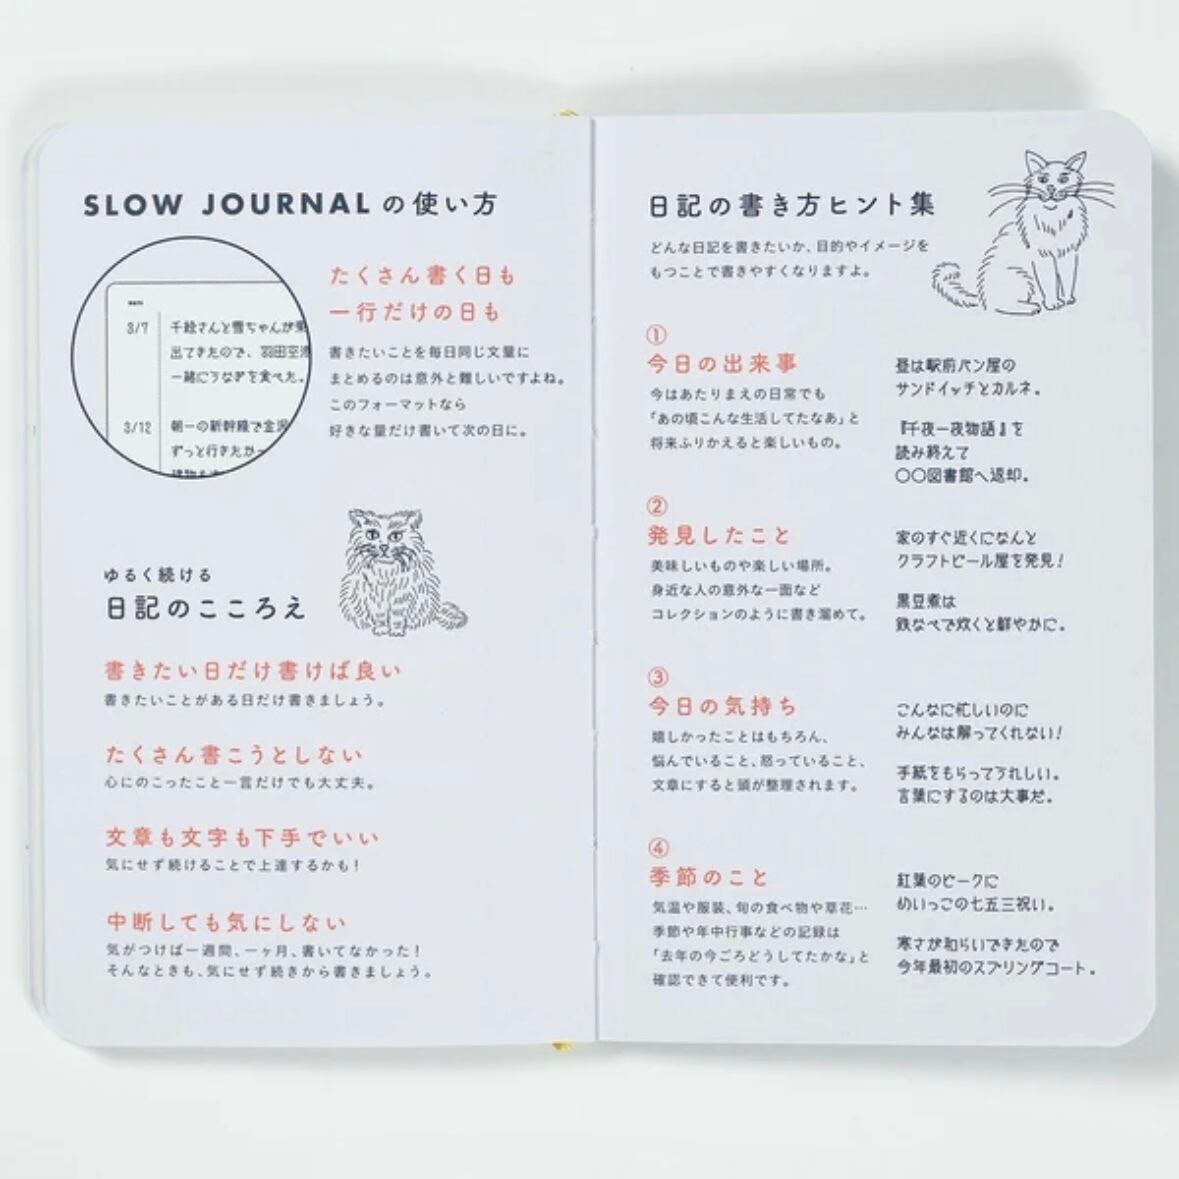 SLOW JOURNALの使い方
3/7 千絵さんと雪ちゃんが
出てきたので、羽田空港
一緒にうなぎを食べた。
3/12 朝一の新幹線で金沢
ずっと行きたか
たくさん書く日も
一行だけの日も
書きたいことを毎日同じ文量に
まとめるのは意外と難しいですよね。
このフォーマットなら
好きな量だけ書いて次の日に。
ゆるく続ける
日記のこころえ
書きたい日だけ書けば良い
書きたいことがある日だけ書きましょう。
たくさん書こうとしない
心にのこったこと一言だけでも大丈夫。
文章も文字も下手でいい
気にせず続けることで上達するかも!
中断しても気にしない
気がつけば一週間、一ヶ月、書いてなかった!
そんなときも、気にせず続きから書きましょう。
日記の書き方ヒント集
どんな日記を書きたいか、目的やイメージを
もつことで書きやすくなりますよ。
①
今日の出来事
今はあたりまえの日常でも
「あの頃こんな生活してたなあ」と
将来ふりかえると楽しいもの。
昼は駅前パン屋の
サンドイッチとカルネ。
『千夜一夜物語』を
読み終えて
〇〇図書館へ返却。
②
発見したこと
美味しいものや楽しい場所。
身近な人の意外な一面など
コレクションのように書き溜めて。
家のすぐ近くになんと
クラフトビール屋を発見!
黒豆煮は
鉄なべで炊くと鮮やかに。
③
今日の気持ち
嬉しかったことはもちろん、
悩んでいること、怒っていること、
文章にすると頭が整理されます。
こんなに忙しいのに
みんなは解ってくれない!
手紙をもらってうれしい。
言葉にするのは大事だ。
④
季節のこと
気温や服装、旬の食べ物や草花…
季節や年中行事などの記録は
「去年の今ごろどうしてたかな」と
確認できて便利です。
紅葉のピークに
めいっこの七五三祝い。
寒さが和らいできたので
今年最初のスプリングコート。